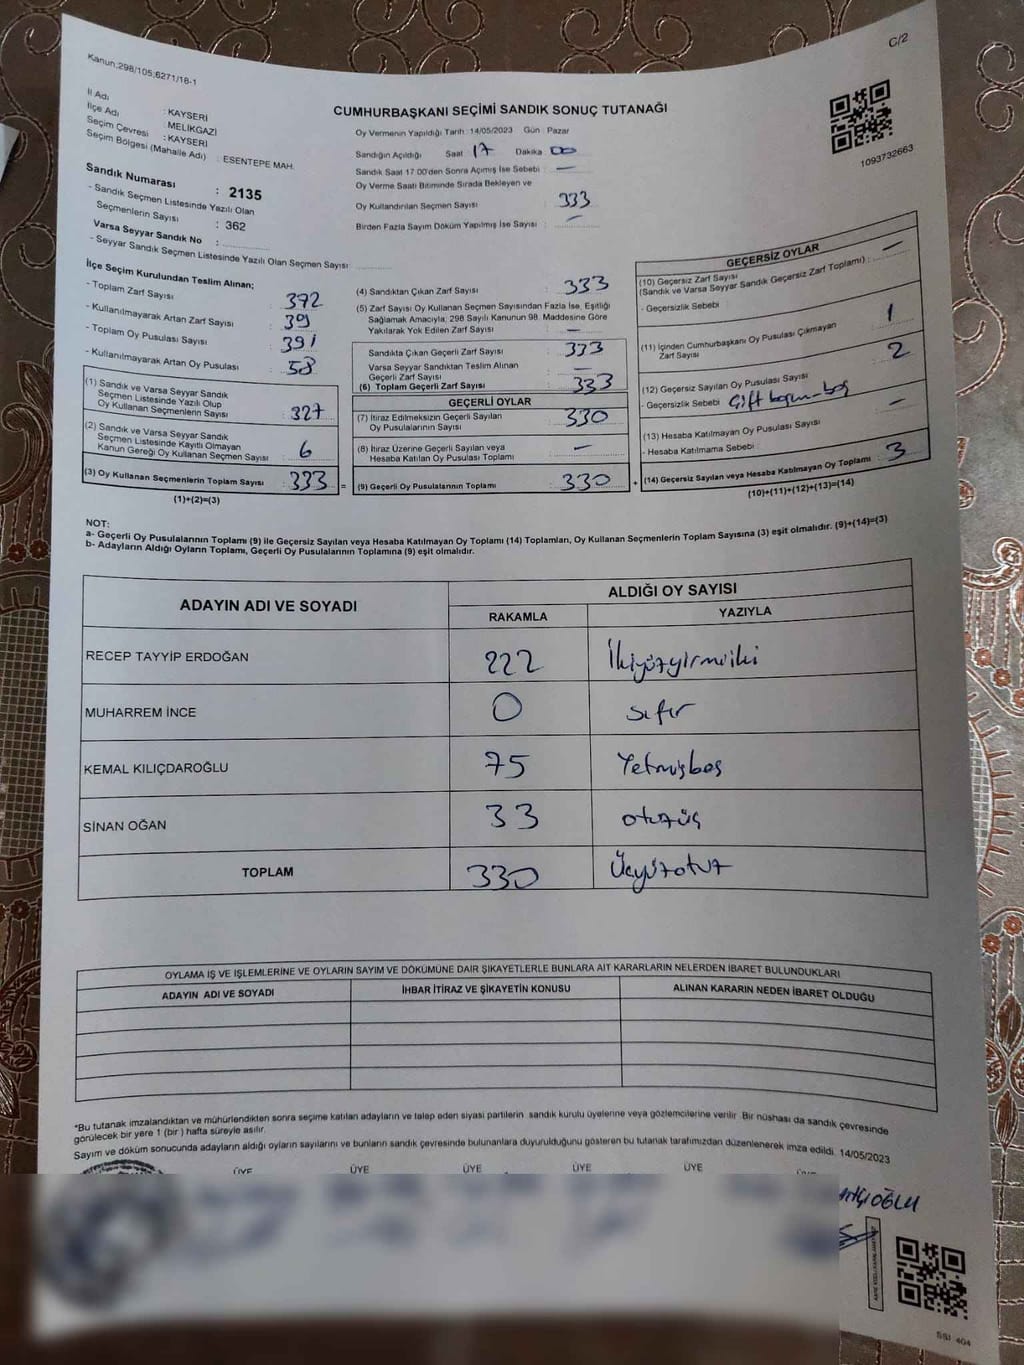 C/2
Kanun:298/105;6271/18-1
CUMHURBAŞKANI SEÇİMİ SANDIK SONUÇ TUTANAĞI
1093732663
İl Adı : KAYSERİ
İlçe Adı : MELİKGAZİ
Seçim Çevresi : KAYSERİ
Seçim Bölgesi (Mahalle Adı) : ESENTEPE MAH.
Sandık Numarası : 2135
- Sandık Seçmen Listesinde Yazılı Olan
Seçmenlerin Sayısı : 362
Varsa Seyyar Sandık No :
- Seyyar Sandık Seçmen Listesinde Yazılı Olan Seçmen Sayısı :
İlçe Seçim Kurulundan Teslim Alınan;
- Toplam Zarf Sayısı : 372
- Kullanılmayarak Artan Zarf Sayısı : 39
- Toplam Oy Pusulası Sayısı : 391
- Kullanılmayarak Artan Oy Pusulası : 58
(1) Sandık ve Varsa Seyyar Sandık
Seçmen Listesinde Yazılı Olup
Oy Kullanan Seçmenlerin Sayısı : 327
(2) Sandık ve Varsa Seyyar Sandık
Seçmen Listesinde Kayıtlı Olmayan
Kanun Gereği Oy Kullanan Seçmen Sayısı : 6
(3) Oy Kullanan Seçmenlerin Toplam Sayısı : 333
(1)+(2)=(3)
Oy Vermenin Yapıldığı Tarih : 14/05/2023 Gün : Pazar
Sandığın Açıldığı Saat : 17 Dakika : 00
Sandık Saat 17:00'den Sonra Açımış İse Sebebi : —
Oy Verme Saati Bitiminde Sırada Bekleyen ve
Oy Kullandırılan Seçmen Sayısı : 333
Birden Fazla Sayım Döküm Yapılmış İse Sayısı : —
(4) Sandıktan Çıkan Zarf Sayısı : 333
(5) Zarf Sayısı Oy Kullanan Seçmen Sayısından Fazla İse, Eşitliği
Sağlamak Amacıyla; 298 Sayılı Kanunun 98. Maddesine Göre
Yakılarak Yok Edilen Zarf Sayısı : —
Sandıkta Çıkan Geçerli Zarf Sayısı : 333
Varsa Seyyar Sandıktan Teslim Alınan
Geçerli Zarf Sayısı : —
(6) Toplam Geçerli Zarf Sayısı : 333
GEÇERLİ OYLAR
(7) İtiraz Edilmeksizin Geçerli Sayılan
Oy Pusulalarının Sayısı : 330
(8) İtiraz Üzerine Geçerli Sayılan veya
Hesaba Katılan Oy Pusulası Toplamı : —
= (9) Geçerli Oy Pusulalarının Toplamı : 330 +
GEÇERSİZ OYLAR
(10) Geçersiz Zarf Sayısı
(Sandık ve Varsa Seyyar Sandık Geçersiz Zarf Toplamı) : —
- Geçersizlik Sebebi :
(11) İçinden Cumhurbaşkanı Oy Pusulası Çıkmayan
Zarf Sayısı : 1
(12) Geçersiz Sayılan Oy Pusulası Sayısı : 2
- Geçersizlik Sebebi : Çift
(13) Hesaba Katılmayan Oy Pusulası Sayısı : —
- Hesaba Katılmama Sebebi :
(14) Geçersiz Sayılan veya Hesaba Katılmayan Oy Toplamı : 3
(10)+(11)+(12)+(13)=(14)
NOT:
a- Geçerli Oy Pusulalarının Toplamı (9) ile Geçersiz Sayılan veya Hesaba Katılmayan Oy Toplamı (14) Toplamları, Oy Kullanan Seçmenlerin Toplam Sayısına (3) eşit olmalıdır. (9)+(14)=(3)
b- Adayların Aldığı Oyların Toplamı, Geçerli Oy Pusulalarının Toplamına (9) eşit olmalıdır.
ADAYIN ADI VE SOYADI
ALDIĞI OY SAYISI
RAKAMLA YAZIYLA
RECEP TAYYİP ERDOĞAN 222 İkiyüzyirmiiki
MUHARREM İNCE 0 sıfır
KEMAL KILIÇDAROĞLU 75 Yetmişbeş
SİNAN OĞAN 33 otuzüç
TOPLAM 330 Üçyüzotuz
OYLAMA İŞ VE İŞLEMLERİNE VE OYLARIN SAYIM VE DÖKÜMÜNE DAİR ŞİKAYETLERLE BUNLARA AİT KARARLARIN NELERDEN İBARET BULUNDUKLARI
ADAYIN ADI VE SOYADI İHBAR İTİRAZ VE ŞİKAYETİN KONUSU ALINAN KARARIN NEDEN İBARET OLDUĞU
*Bu tutanak imzalandıktan ve mühürlendikten sonra seçime katılan adayların ve talep eden siyasi partilerin sandık kurulu üyelerine veya gözlemcilerine verilir. Bir nüshası da sandık çevresinde
görülecek bir yere 1 (bir) hafta süreyle asılır.
Sayım ve döküm sonucunda adayların aldığı oyların sayılarını ve bunların sandık çevresinde bulunanlara duyurulduğunu gösteren bu tutanak tarafımızdan düzenlenerek imza edildi. 14/05/2023
ÜYE ÜYE ÜYE ÜYE ÜYE
SSI 404